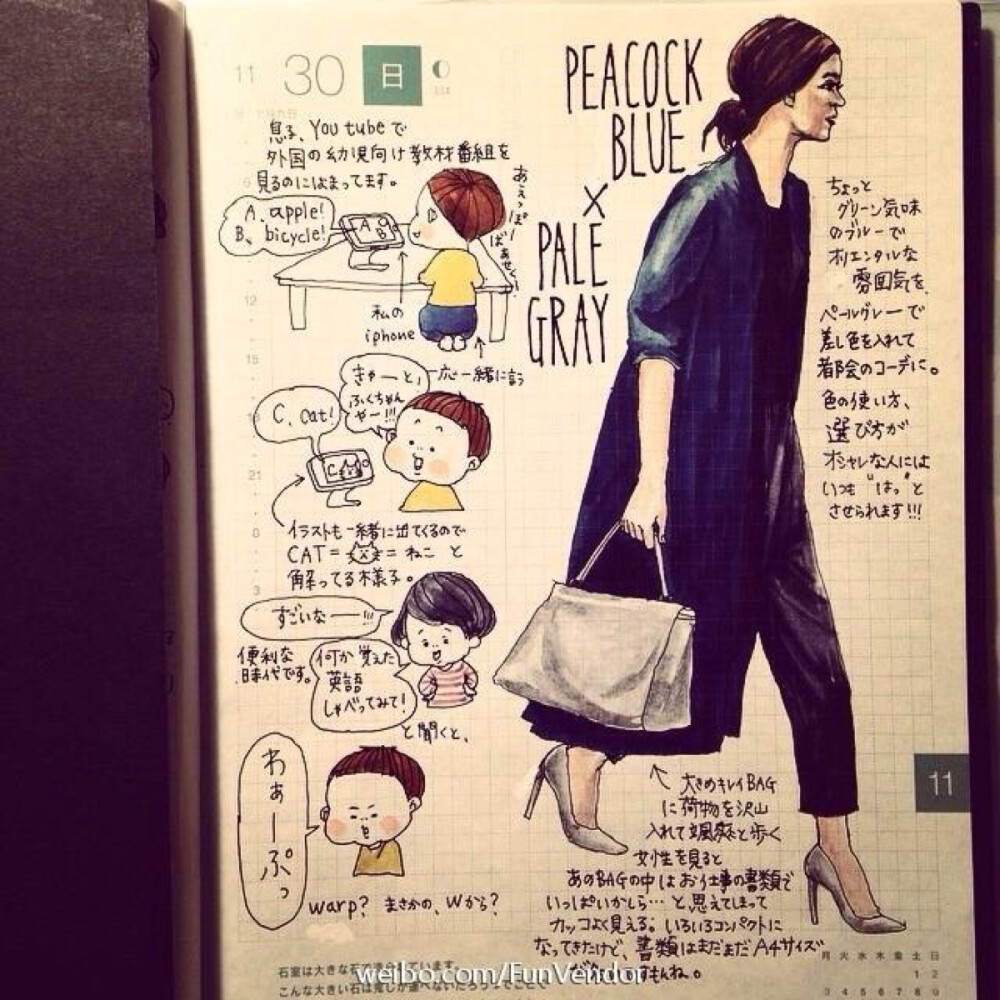 11 30 日
息子、You tubeで
外国の幼児向け教材番組を
見るのにはまってます。
A. apple!
B. bicycle!
A B
あぇっぽー
ばぁせくー
私の
iphone
一応一緒に言う
きゃーと、
ふくちゃん
やー!!!
C. cat!
C
イラストも一緒に出てくるので
CAT= =ねこ と
解ってる様子。
すごいなー!!!
便利な
時代です。
何か覚えた
英語
しゃべってみて!
と聞くと、
わぁーぷっ
warp? まさかの、Wから?
PEACOCK
BLUE
×
PALE
GRAY
ちょっと
グリーン気味
のブルーで
オリエンタルな
雰囲気を
ペールグレーで
差し色を入れて
都会のコーデに。
色の使い方、
選び方が
オシャレな人には
いつも"はっ"と
させられます!!!
大きめキレイBAG
に荷物を沢山
入れて颯爽と歩く
女性を見ると
あのBAGの中はお仕事の書類で
いっぱいかしら…と思えてしまって
カッコよく見える。いろいろコンパクトに
なってきたけど、書類はまだまだA4サイズ
もんね。
11
月 火 水 木 金 土 日
1 2
3 4 5 6 7 8 9
12
15
21
0
3
石室は大きな石で
こんな大きい石は
weibo.com/FunVendor